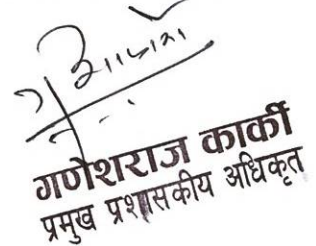 गणेशराज कार्की
प्रमुख प्रशासकीय अधिकृत